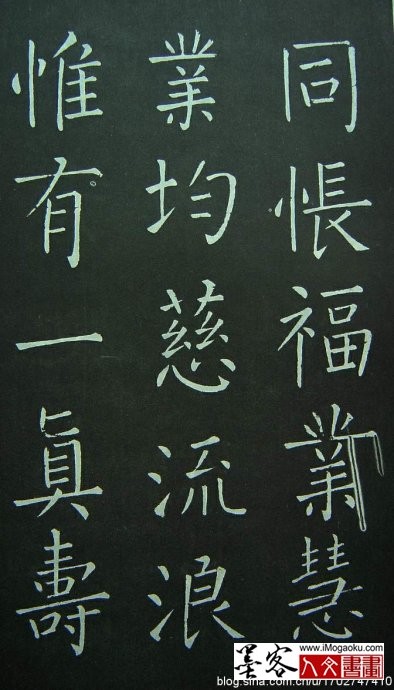 同悵福業慧
業均慈流浪
惟有一眞壽
墨客
www.iMogaoku.com
人文書畫
blog.sina.com.cn/u/1702747410